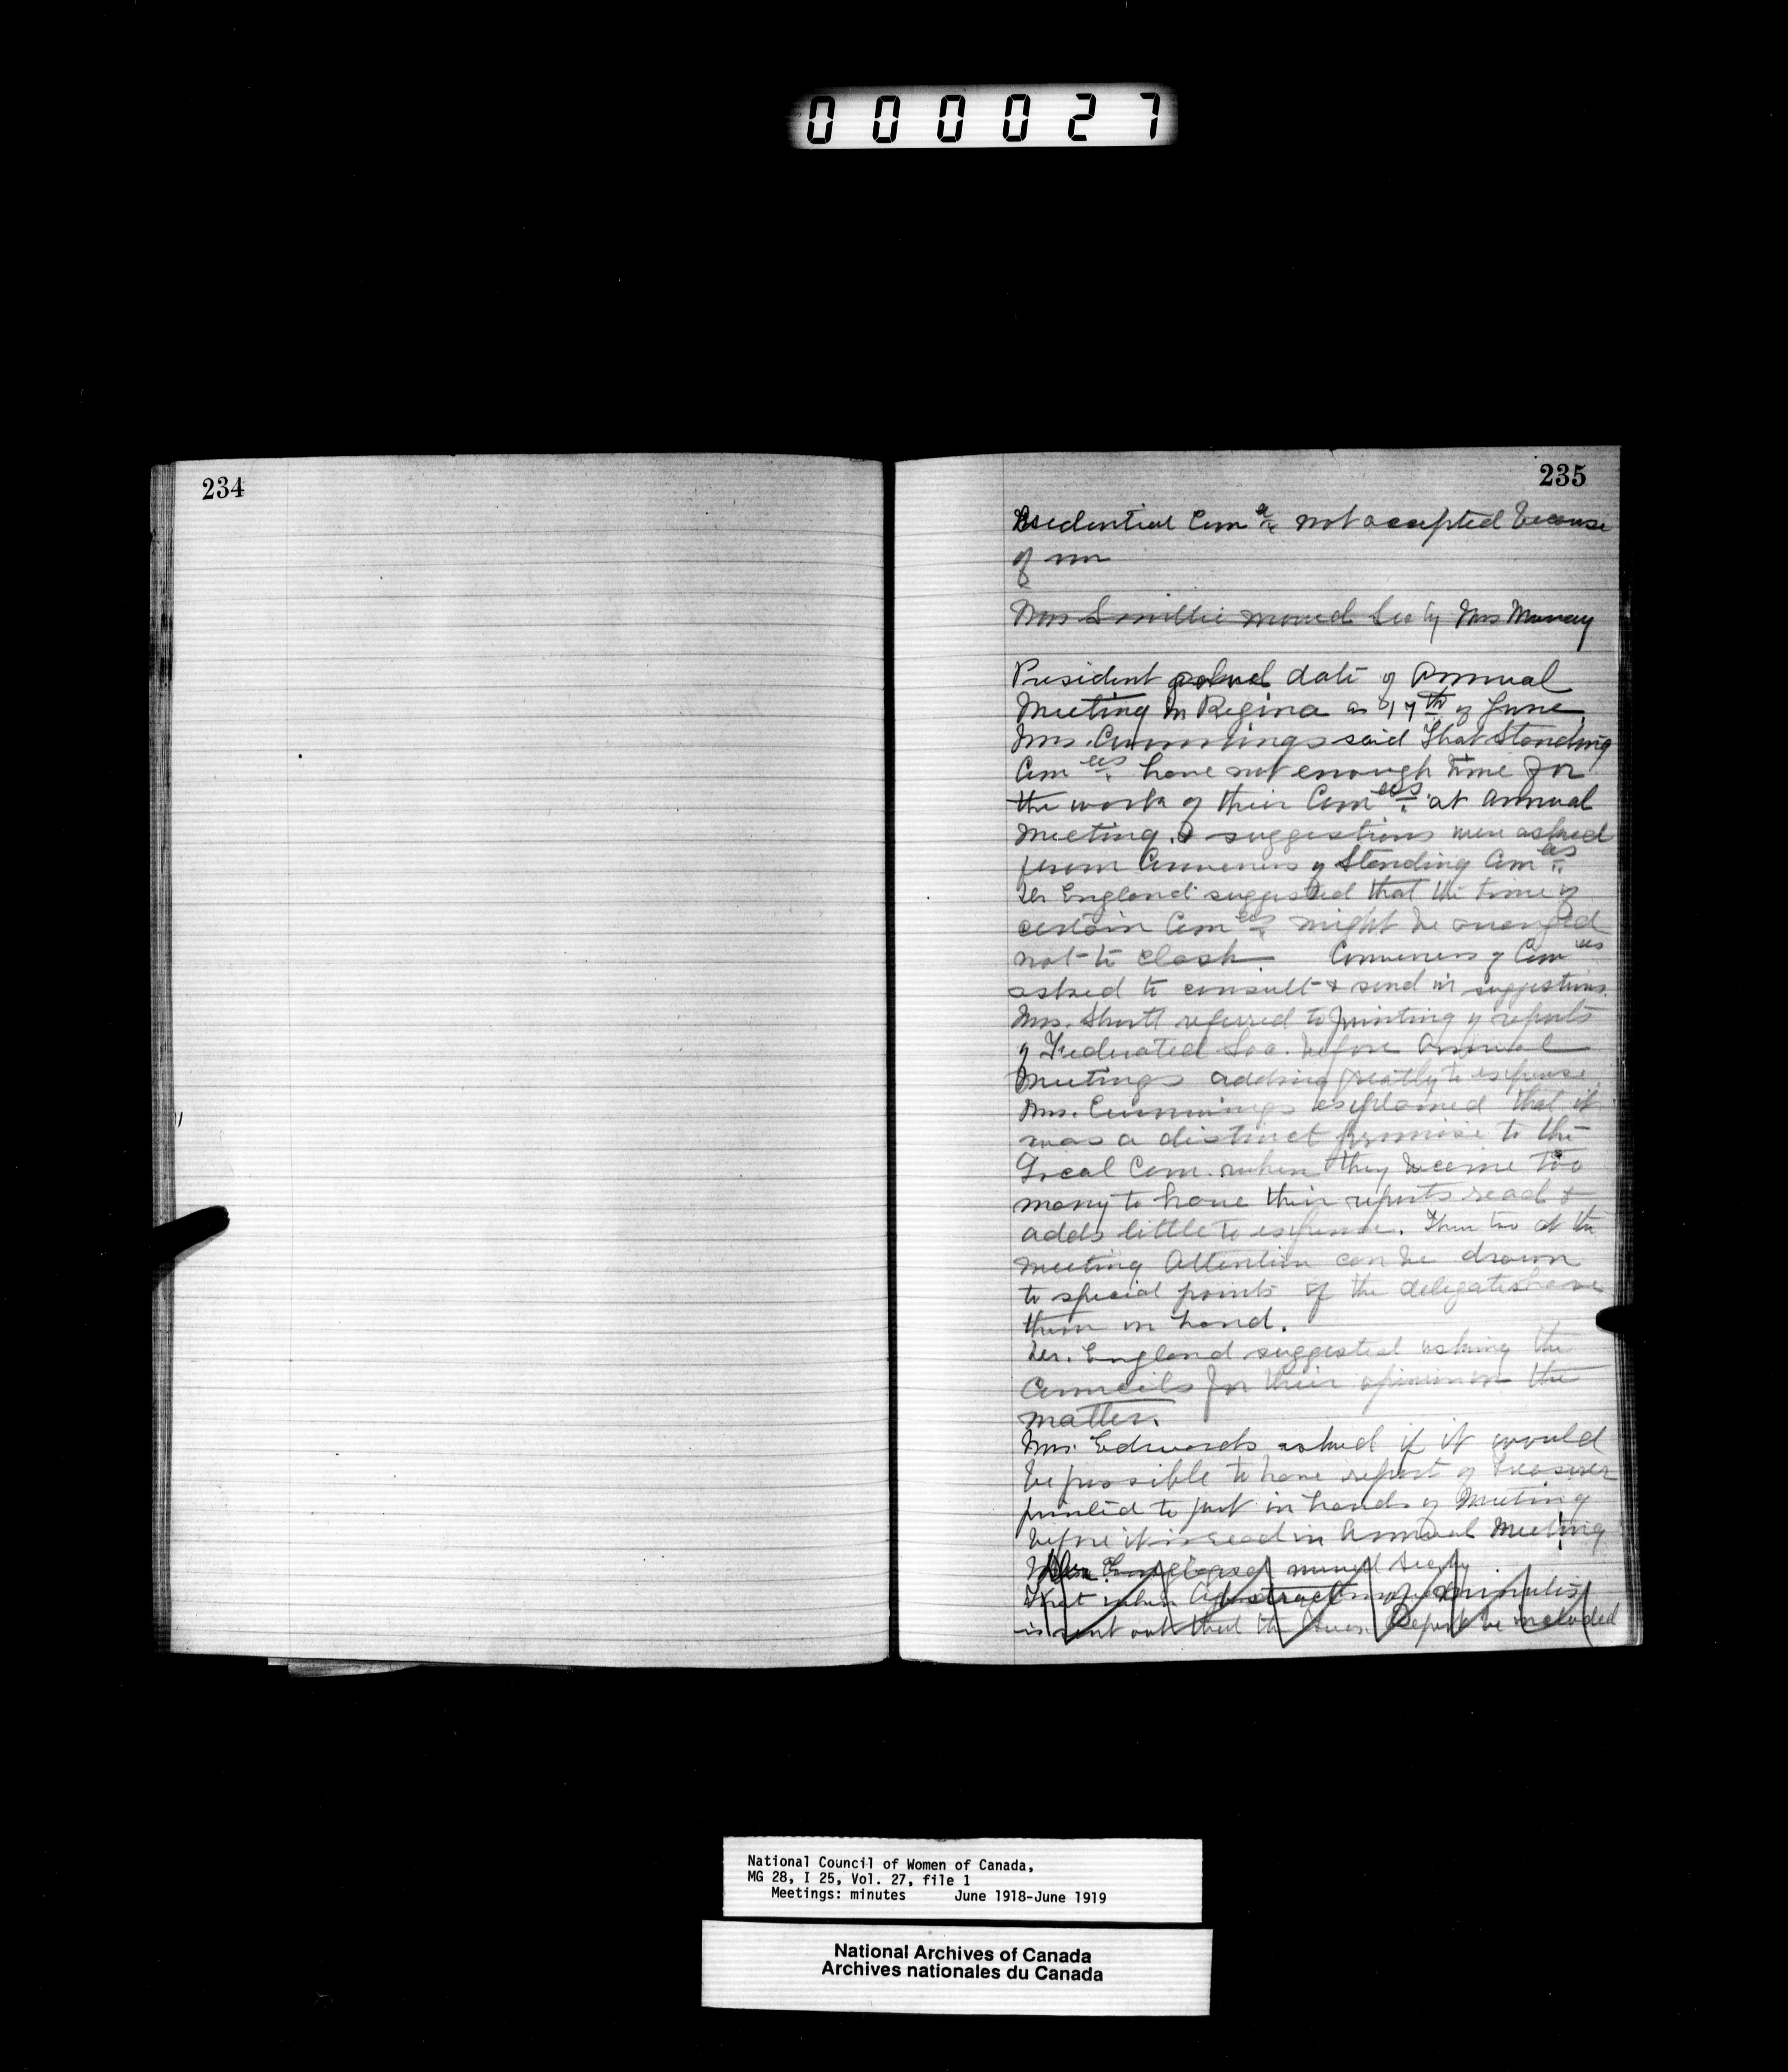 000027
234
235
Residential Com ee not accepted because
of
Mrs Smillie moved Sec by Mrs Murray
President asked date of Annual
Meeting in Regina as 17th of June.
Mrs. Cummings said that Standing
Com ees. have not enough time for
the work of their Com ees. at annual
meeting. suggestions were asked
from Conveners of Standing Com ees.
Dr England suggested that the time of
certain Com ees might be arranged
not to clash. Conveners of Com ees
asked to consult & send in suggestions.
Mrs. Shortt referred to printing of reports
of Federated Soc. before annual
Meetings adding greatly to expense.
Mrs. Cummings explained that it
was a distinct promise to the
Local Coun. when they became too
many to have their reports read &
adds little to expense. Then too at the
meeting attention can be drawn
to special points if the delegates have
them in hand.
Dr. England suggested asking the
Councils for their opinion on the
matter.
Mrs. Edwards asked if it would
be possible to have report of Treasurer
printed to put in hands of Meeting
before it is read in Annual Meeting
moved sec by
That when Abstract of minutes
is sent out that the Treas. Report be included
National Council of Women of Canada,
MG 28, I 25, Vol. 27, file 1
Meetings: minutes June 1918-June 1919
National Archives of Canada
Archives nationales du Canada